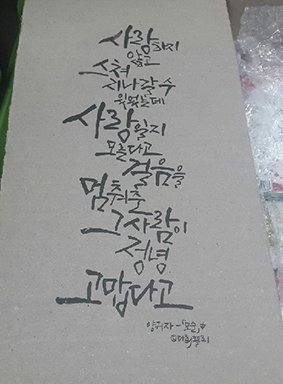 사랑하지
않고
스쳐
지나갈 수
있었는데
사랑일지
모른다고
걸음을
멈춰준
그 사람이
정녕
고맙다고
양귀자 - 「모순」中